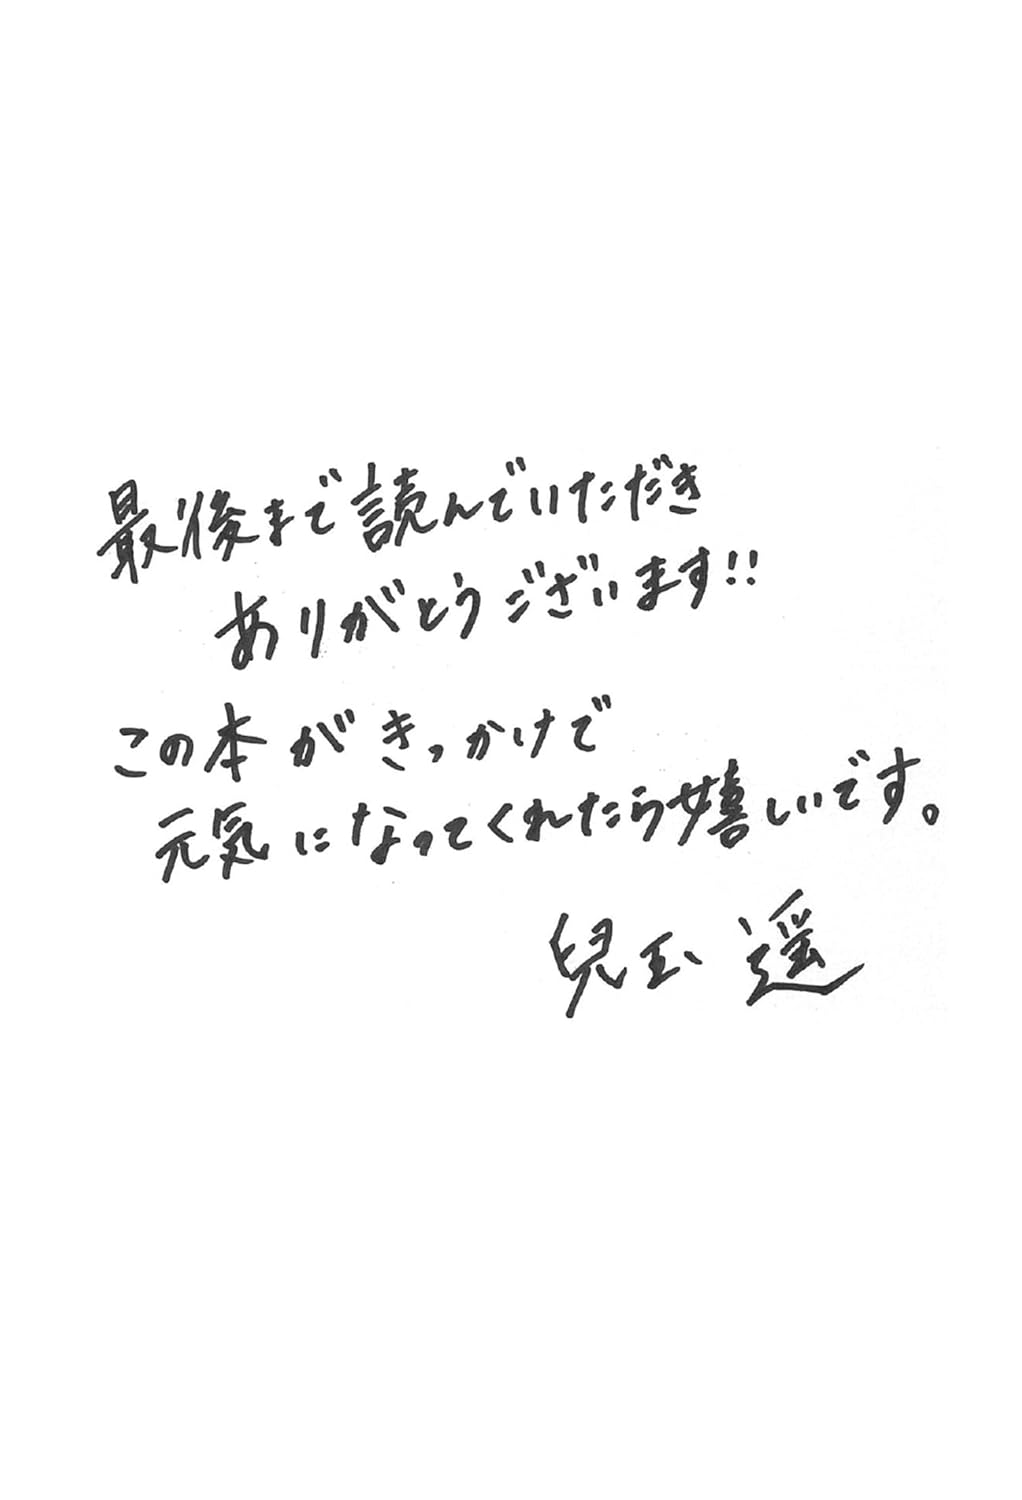 最後まで読んでいただき
ありがとうございます!!
この本がきっかけで
元気になってくれたら嬉しいです。
兒玉 遥